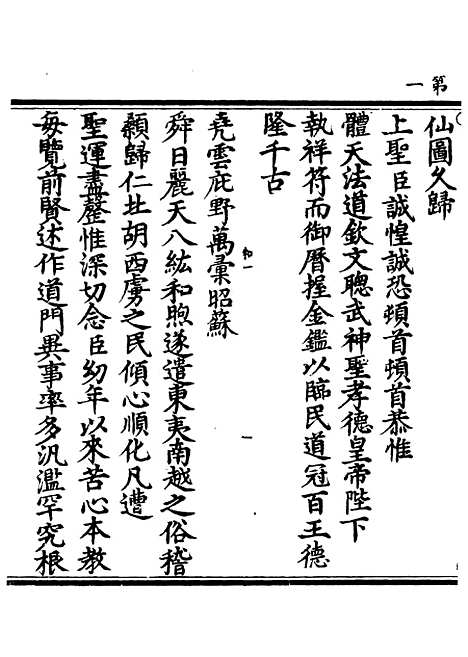 第一
仙圖久歸
上聖臣誠惶誠恐頓首頓首恭惟
體天法道欽文聰武神聖孝德皇帝陛下
執祥符而御曆握金鑑以臨民道冠百王德
隆千古
堯雲庇野萬彙昭蘇
舜日麗天八紘和煦遂遣東夷南越之俗稽
顙歸仁北胡西虜之民傾心順化凡遭
聖運盡整惟深切念臣幼年以來苦心本教
每覽前賢述作道門異事率多汎濫罕究根